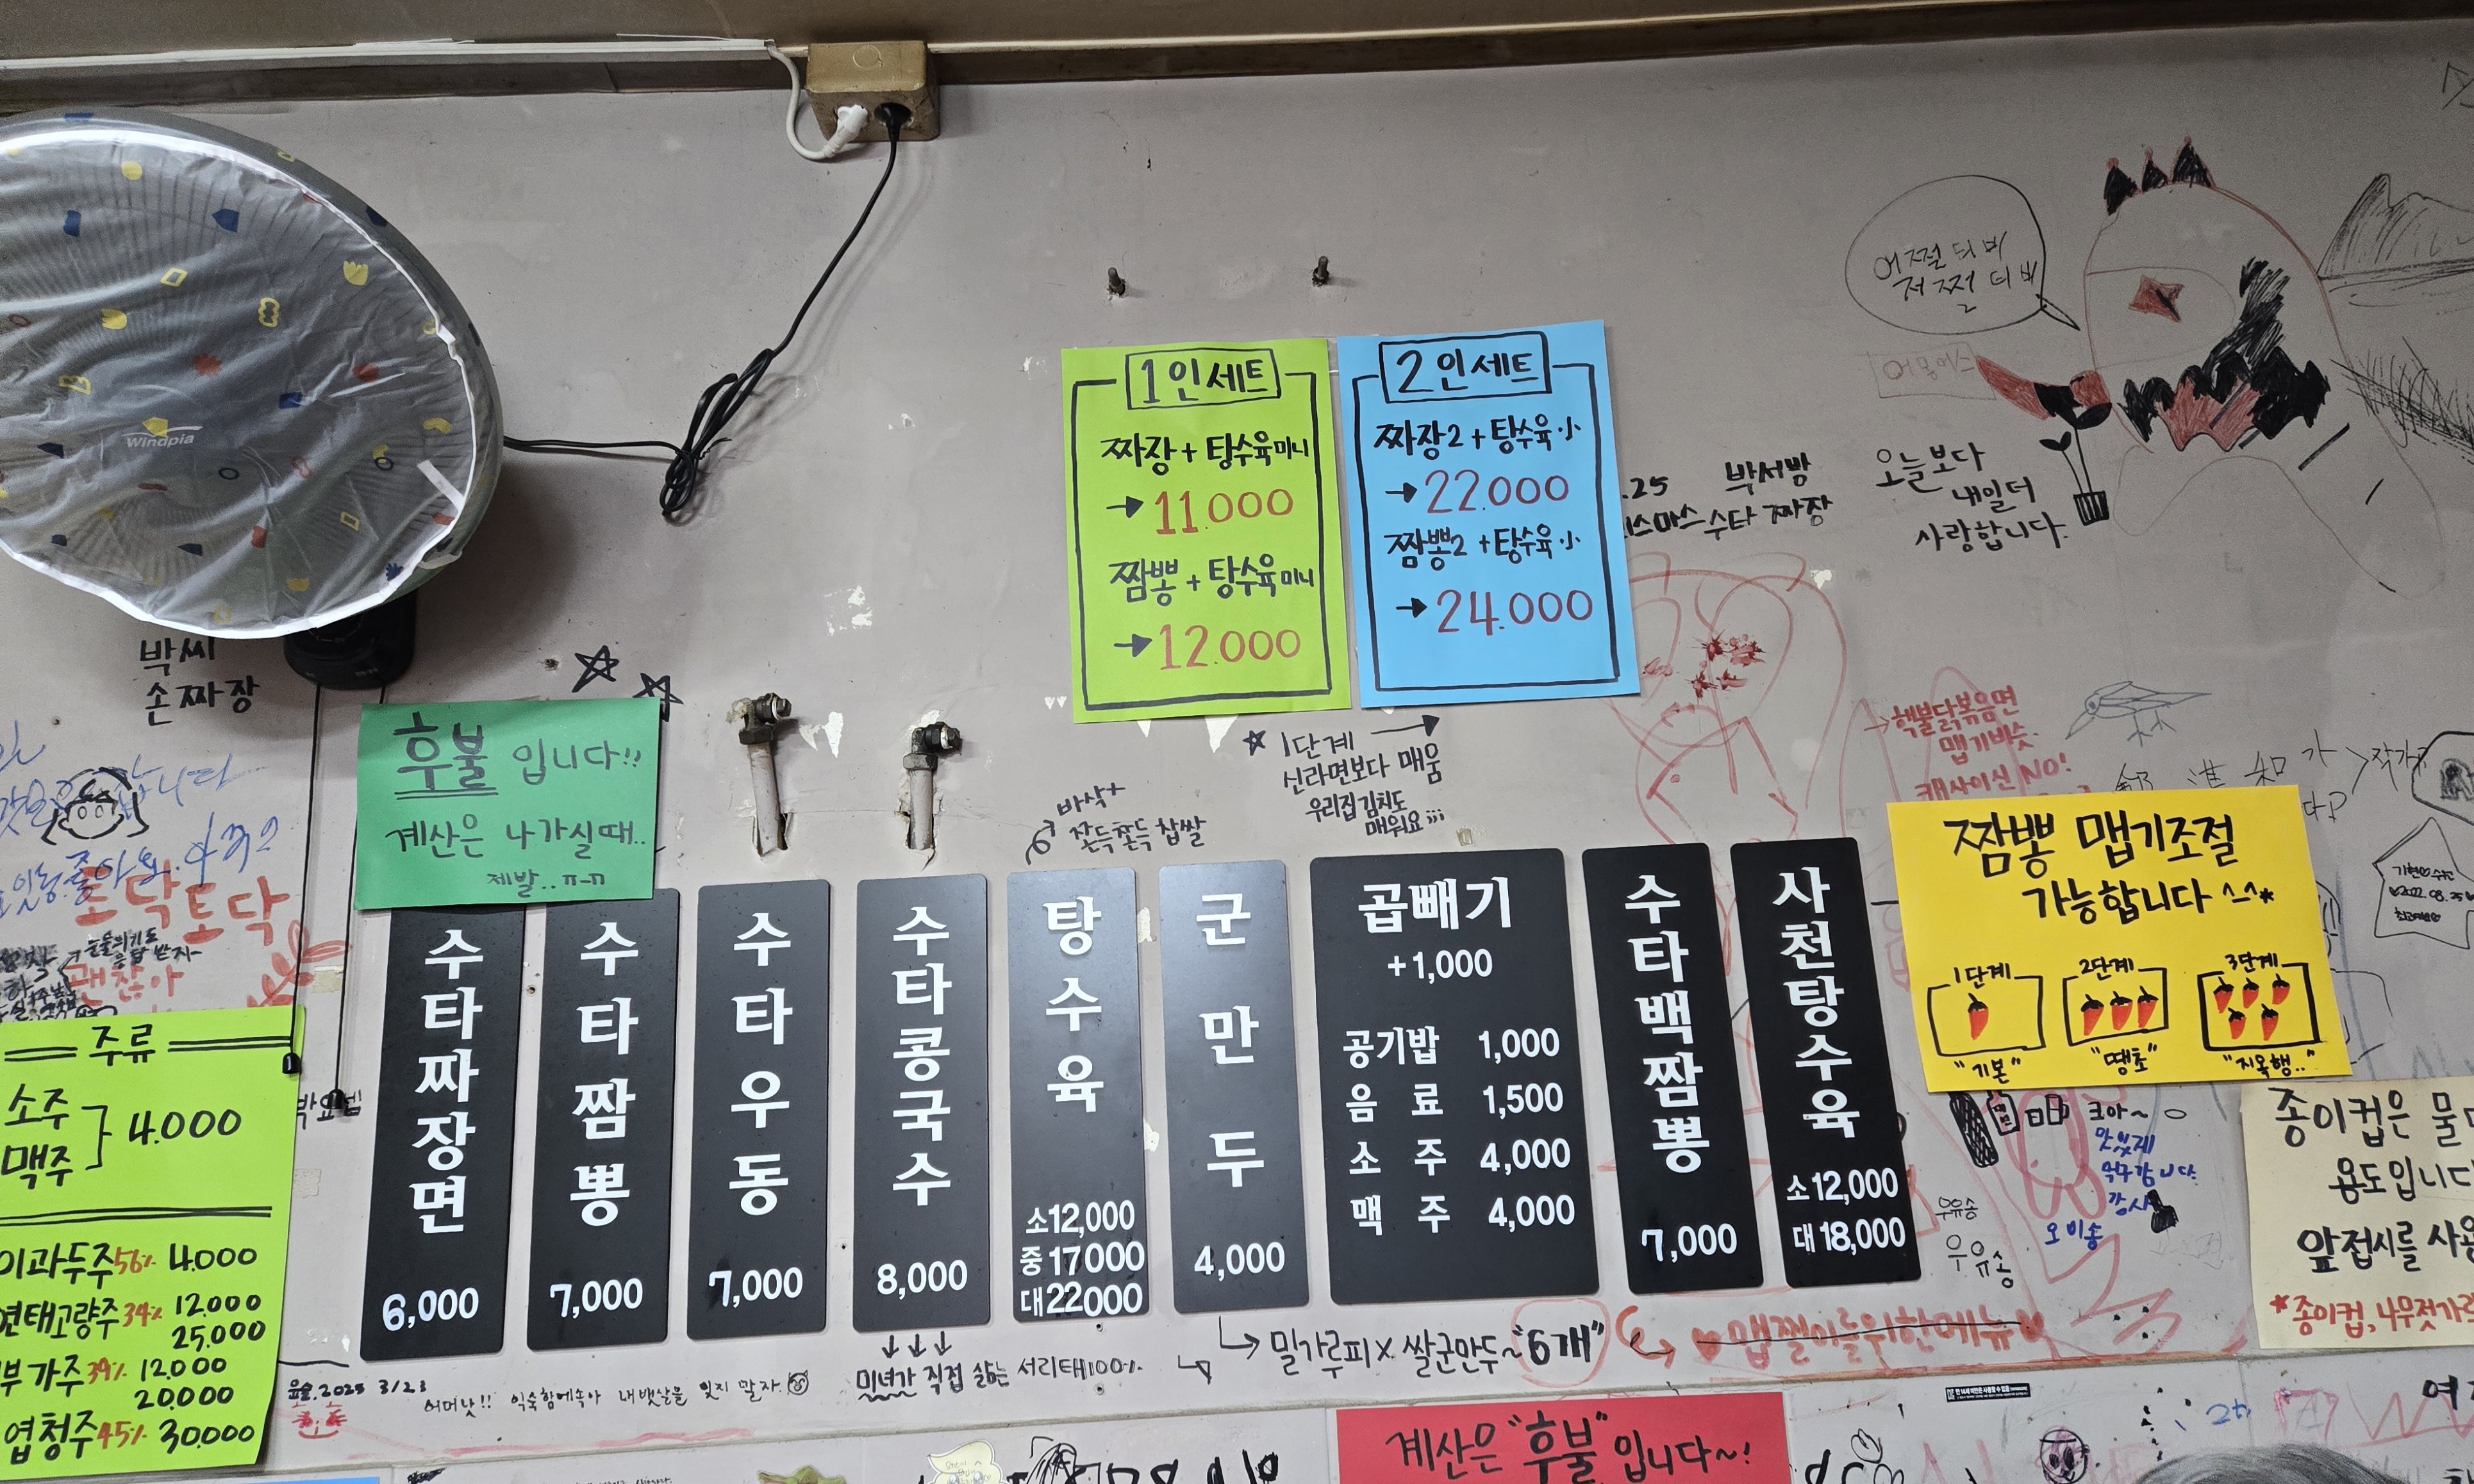 Windpia
어쩔티비
저쩔티비
1인세트
짜장+탕수육미니
→11.000
짬뽕+탕수육미니
→12.000
2인세트
짜장2+탕수육.小
→22.000
짬뽕2+탕수육.小
→24.000
.25 박서방
스마스 수타 짜장
오늘보다
내일더
사랑합니다.
박씨
손짜장
후불 입니다!!
계산은 나가실때..
제발..ㅠㅠ
토닥토닥
괜찮아
☆1단계 →
신라면보다 매움
우리집김치도
매워요;;;
바삭+
쫀득쫀득찹쌀
핵불닭볶음면
맵기비슷.
캡사이신 NO!
짬뽕 맵기조절
가능합니다^^*
1단계
"기본"
2단계
"땡초"
3단계
"지옥행.."
주류
소주
맥주
4.000
이과두주56% 4.000
연태고량주34% 12.000
25.000
부가주39% 12.000
20.000
엽청주45% 30.000
수타짜장면
6,000
수타짬뽕
7,000
수타우동
7,000
수타콩국수
8,000
탕수육
소12,000
중17000
대22000
군만두
4,000
곱빼기
+1,000
공기밥 1,000
음료 1,500
소주 4,000
맥주 4,000
수타백짬뽕
7,000
사천탕수육
소12,000
대18,000
크아~
맛있게
먹구갑니다.
강시
오미송
우유송
우유송
종이컵은 물
용도입니다
앞접시를 사용
*종이컵,나무젓가락
↓↓↓
미녀가 직접 삶는 서리태100%
밀가루피X 쌀군만두~"6개"
♥맵찔이를위한메뉴♥
2025 3/23
어머낫!! 익숙함에속아 내뱃살을 잊지 말자.
계산은 "후불"입니다~!